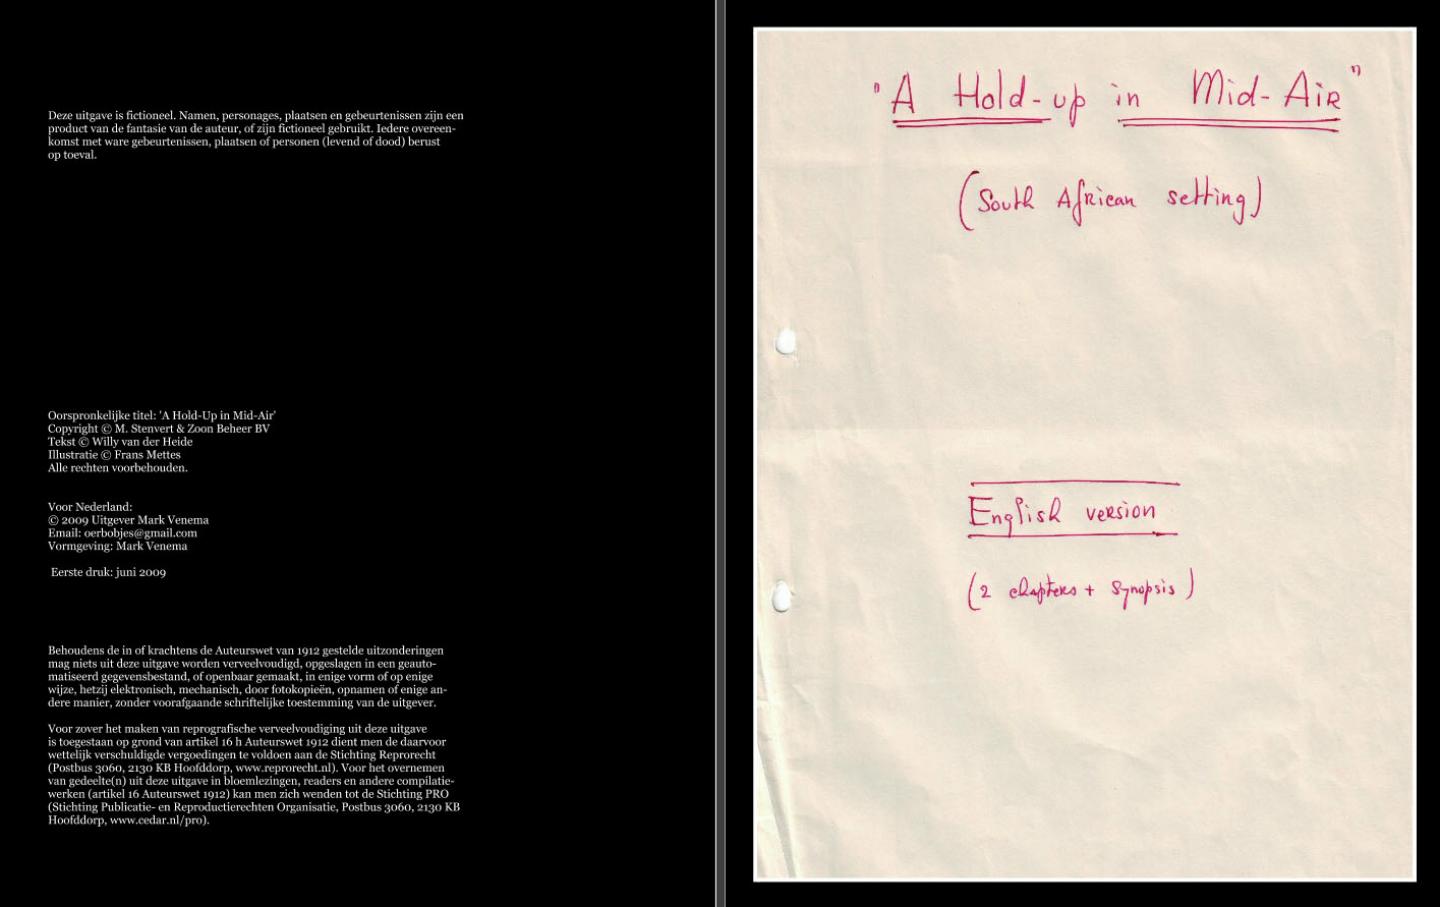 Deze uitgave is fictioneel. Namen, personages, plaatsen en gebeurtenissen zijn een
product van de fantasie van de auteur, of zijn fictioneel gebruikt. Iedere overeen-
komst met ware gebeurtenissen, plaatsen of personen (levend of dood) berust
op toeval.
Oorspronkelijke titel: 'A Hold-Up in Mid-Air'
Copyright © M. Stenvert & Zoon Beheer BV
Tekst © Willy van der Heide
Illustratie © Frans Mettes
Alle rechten voorbehouden.
Voor Nederland:
© 2009 Uitgever Mark Venema
Email: oerbobjes@gmail.com
Vormgeving: Mark Venema
Eerste druk: juni 2009
Behoudens de in of krachtens de Auteurswet van 1912 gestelde uitzonderingen
mag niets uit deze uitgave worden verveelvoudigd, opgeslagen in een geauto-
matiseerd gegevensbestand, of openbaar gemaakt, in enige vorm of op enige
wijze, hetzij elektronisch, mechanisch, door fotokopieën, opnamen of enige an-
dere manier, zonder voorafgaande schriftelijke toestemming van de uitgever.
Voor zover het maken van reprografische verveelvoudiging uit deze uitgave
is toegestaan op grond van artikel 16 h Auteurswet 1912 dient men de daarvoor
wettelijk verschuldigde vergoedingen te voldoen aan de Stichting Reprorecht
(Postbus 3060, 2130 KB Hoofddorp, www.reprorecht.nl). Voor het overnemen
van gedeelte(n) uit deze uitgave in bloemlezingen, readers en andere compilatie-
werken (artikel 16 Auteurswet 1912) kan men zich wenden tot de Stichting PRO
(Stichting Publicatie- en Reproductierechten Organisatie, Postbus 3060, 2130 KB
Hoofddorp, www.cedar.nl/pro).
"A Hold-up in Mid-Air"
(South African setting)
English version
(2 chapters + synopsis)